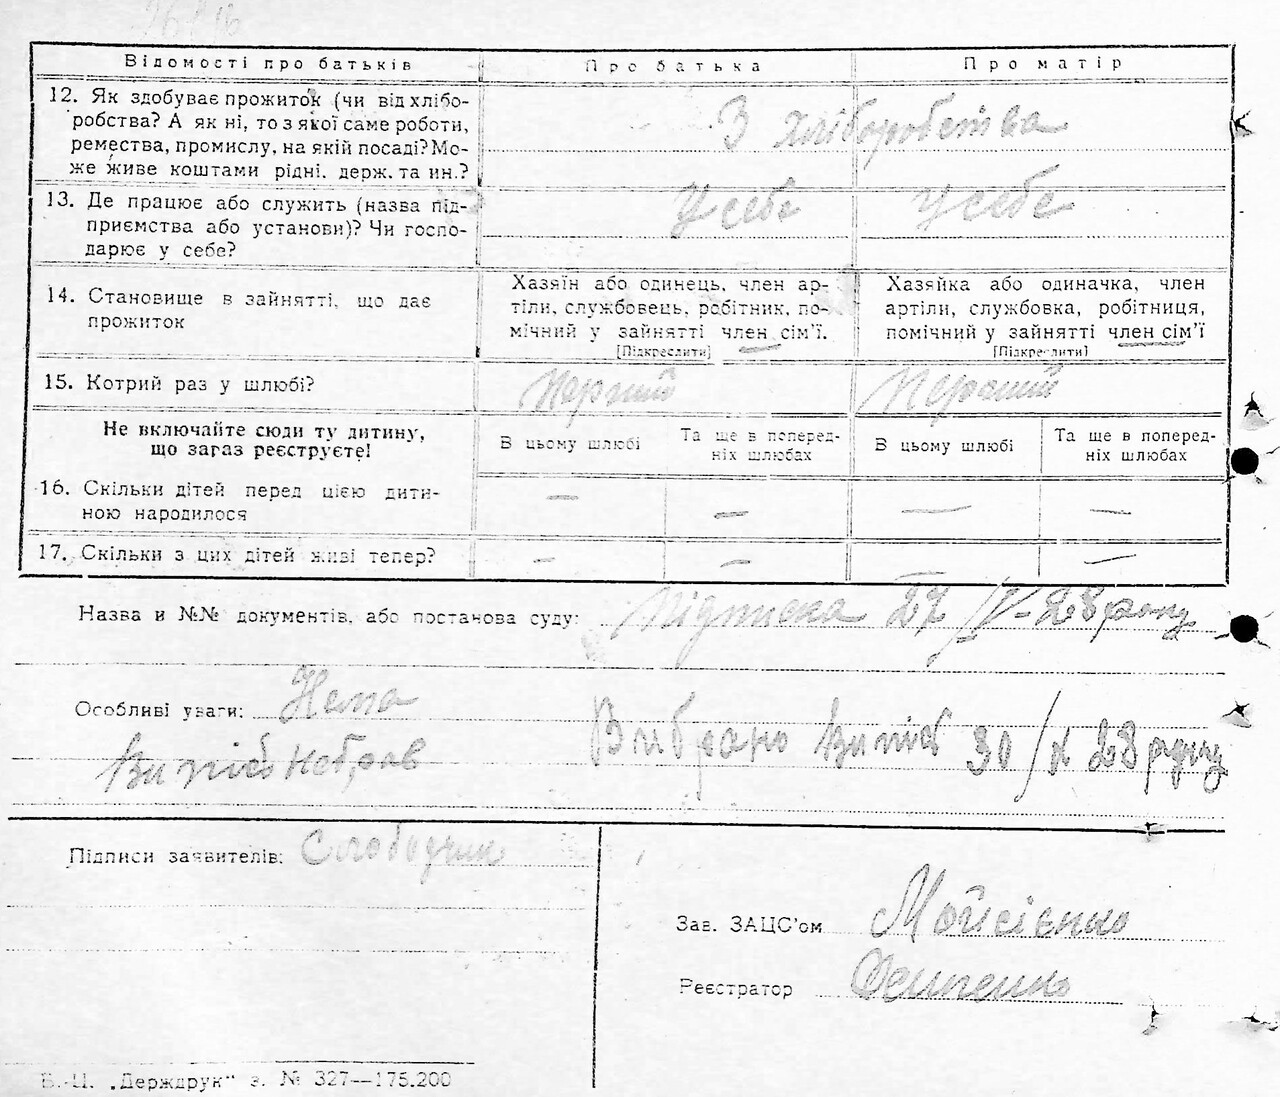 Відомості про батьків Про батька Про матір
12. Як здобуває прожиток (чи від хлібо-
робства? А як ні, то з якої саме роботи,
ремества, промислу, на якій посаді? Мо-
же живе коштами рідні. держ. та ин.?
З хліборобства
13. Де працює або служить (назва під-
приємства або установи)? Чи госпо-
дарює у себе?
У себе У себе
14. Становище в зайнятті, що дає
прожиток
Хазяїн або одинець, член ар-
тіли, службовець, робітник, по-
мічний у зайнятті член сім'ї.
[Підкреслити]
Хазяйка або одиначка, член
артіли, службовка, робітниця,
помічний у зайнятті член сім'ї
[Підкреслити]
15. Котрий раз у шлюбі? Перший Перший
Не включайте сюди ту дитину,
що зараз реєструєте!
В цьому шлюбі
Та ще в поперед-
ніх шлюбах
В цьому шлюбі
Та ще в поперед-
ніх шлюбах
16. Скільки дітей перед цією дити-
ною народилося
— — — —
17. Скільки з цих дітей живі тепер? — — — —
Назва и №№ документів, або постанова суду: Підписка 27/IV-28 року
Особливі уваги: Нема
Випис не брав
Вибрано випис 30/X 28 року
Підписи заявителів:
Зав. ЗАЦС'ом Мойсієнко
Реєстратор
„Держдрук" з. № 327—175.200